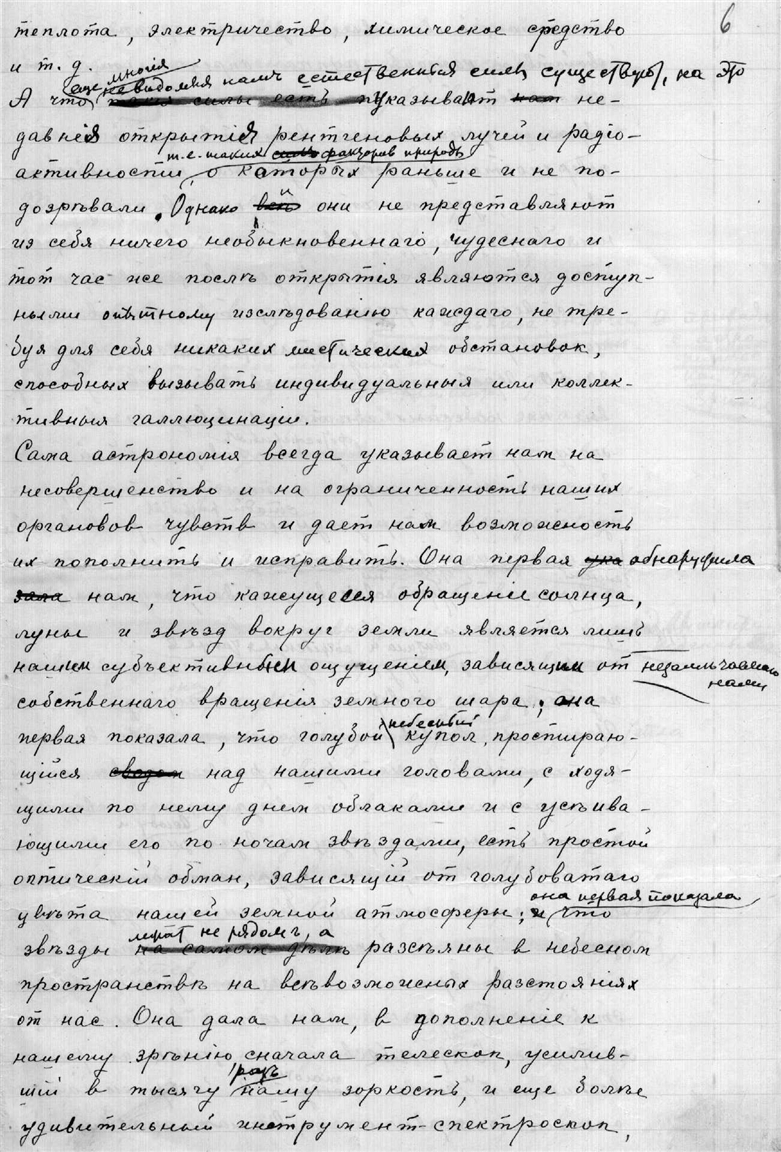 6
теплота, электричество, химическое средство
и т.д.
еще многія невидомыя намъ естественныя силы существуютъ, на это
А что такія силы есть указывают нам не-
давнія открытія рентгеновых лучей и радіо-
т.е. таких силъ факторов природы
активности, о которых раньше и не по-
дозрѣвали. Однако всѣ и они не представляют
из себя ничего необыкновеннаго, чудеснаго и
тот час же послѣ открытія являются доступ-
ными опытному изслѣдованію каждаго, не тре-
буя для себя никаких мистических обстановок,
способных вызывать индивидуальныя или коллек-
тивныя галлюцинаціи.
Сама астрономія всегда указывает нам на
несовершенство и на ограниченность наших
органовов чувств и дает нам возможность
их пополнить и исправить. Она первая ука обнаружила
зала нам, что кажущееся обращеніе солнца,
луны и звѣзд вокруг земли является лишь
нашим субъективным ощущеніем, зависящим от незамѣчаемаго
нами
собственнаго вращенія земного шара; она
небесный
первая показала, что голубой купол, простираю-
щійся сводом над нашими головами, с ходя-
щими по нему днем облаками и с усѣива-
ющими его по ночам звѣздами, есть простой
оптическій обман, зависящій от голубоватаго
она первая показала
цвѣта нашей земной атмосферы; и что
лежат не рядомъ, а
звѣзды на самом дѣлѣ разсѣяны в небесном
пространствѣ на всѣвозможных разстояніях
от нас. Она дала нам, в дополненіе к
нашему зрѣнію сначала телескоп, усилив-
разъ
шій в тысячу нашу зоркость, и еще болѣе
удивительный инструмент-спектроскоп,